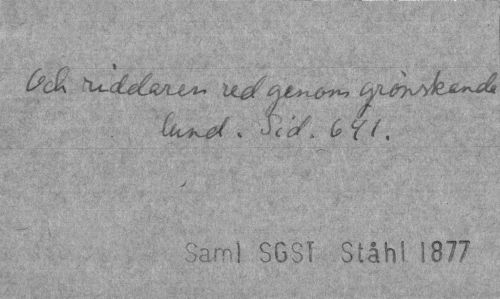 Och riddaren red genom grönskande
lund. Sid. 641.
Saml SGST Ståhl 1877